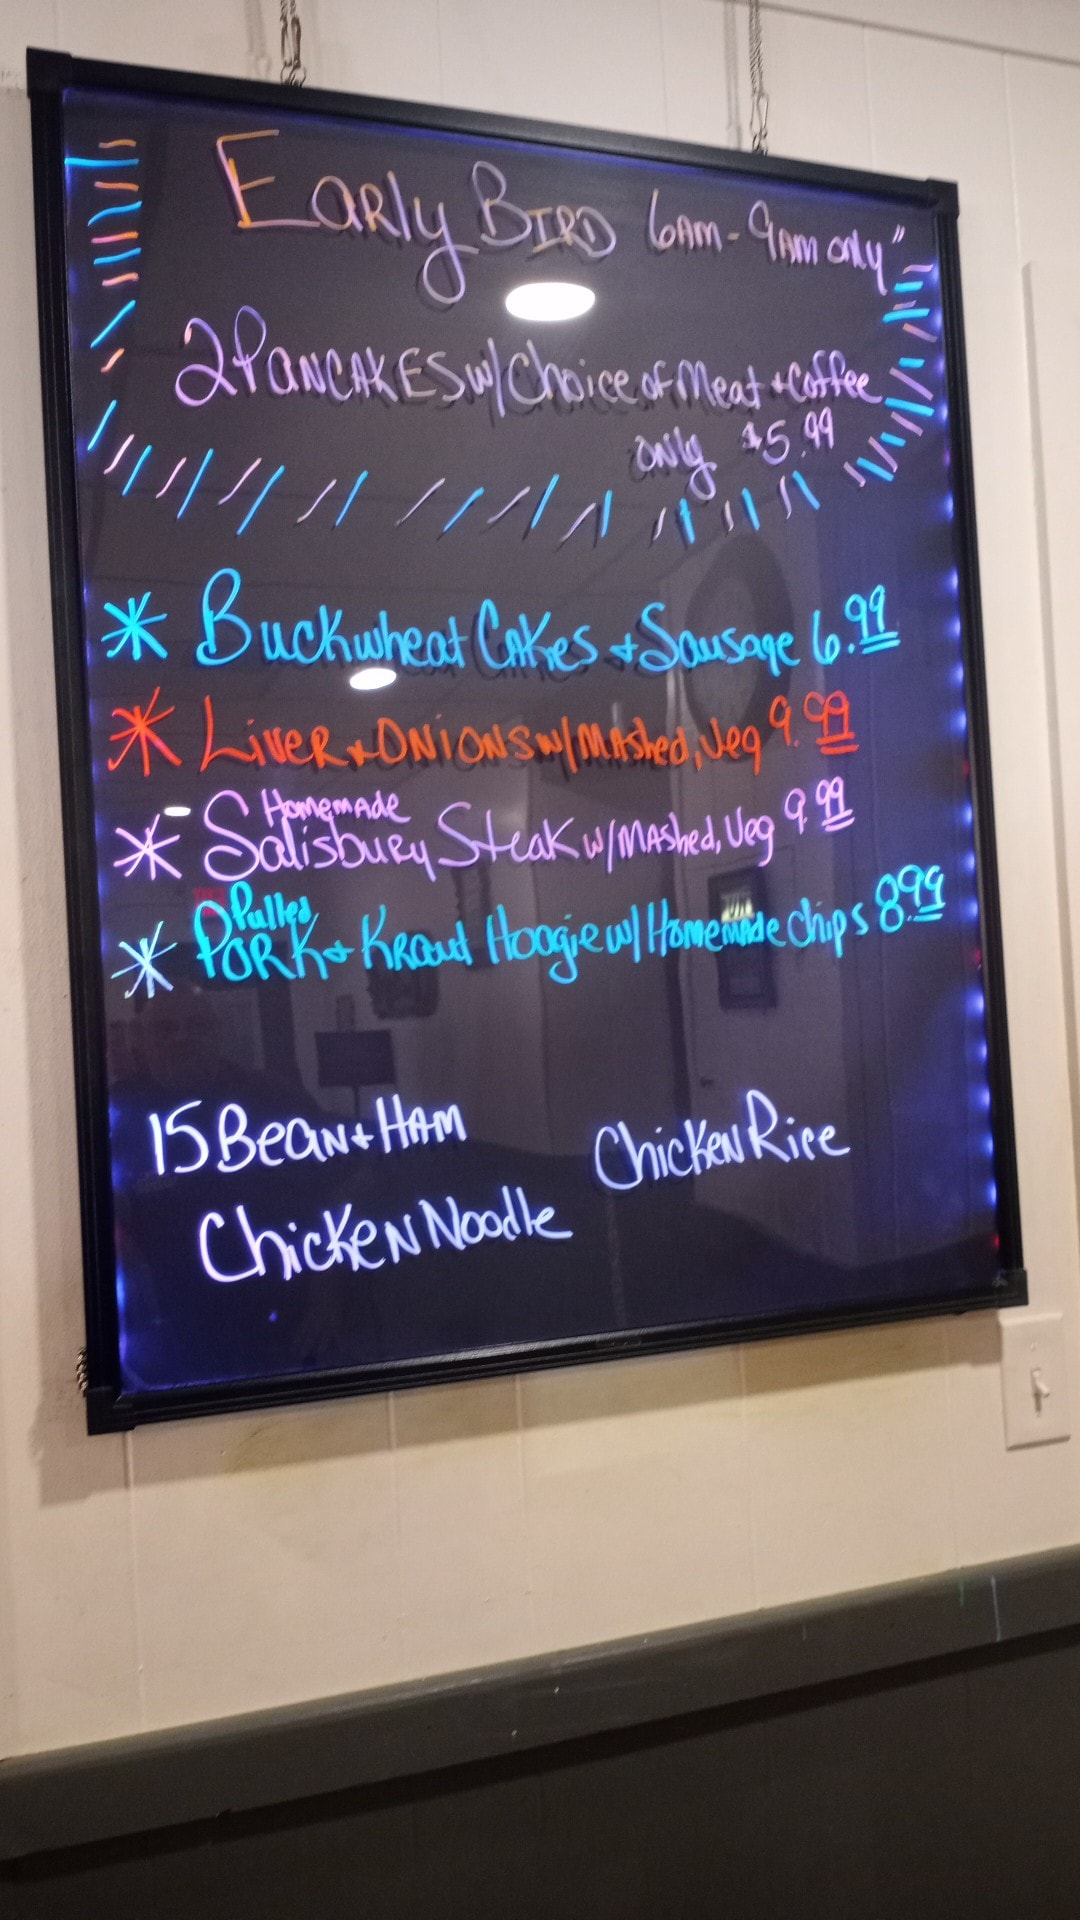 Early Bird 6am - 9am only"
2 Pancakes w/ Choice of Meat + Coffee
only $5.99
* Buckwheat Cakes + Sausage 6.99
* Liver + Onions w/ Mashed, Veg 9.99
* Homemade Salisbury Steak w/ Mashed, Veg 9.99
* Pulled Pork + Kraut Hoagie w/ Homemade chips 8.99
15 Bean + Ham
Chicken Rice
Chicken Noodle